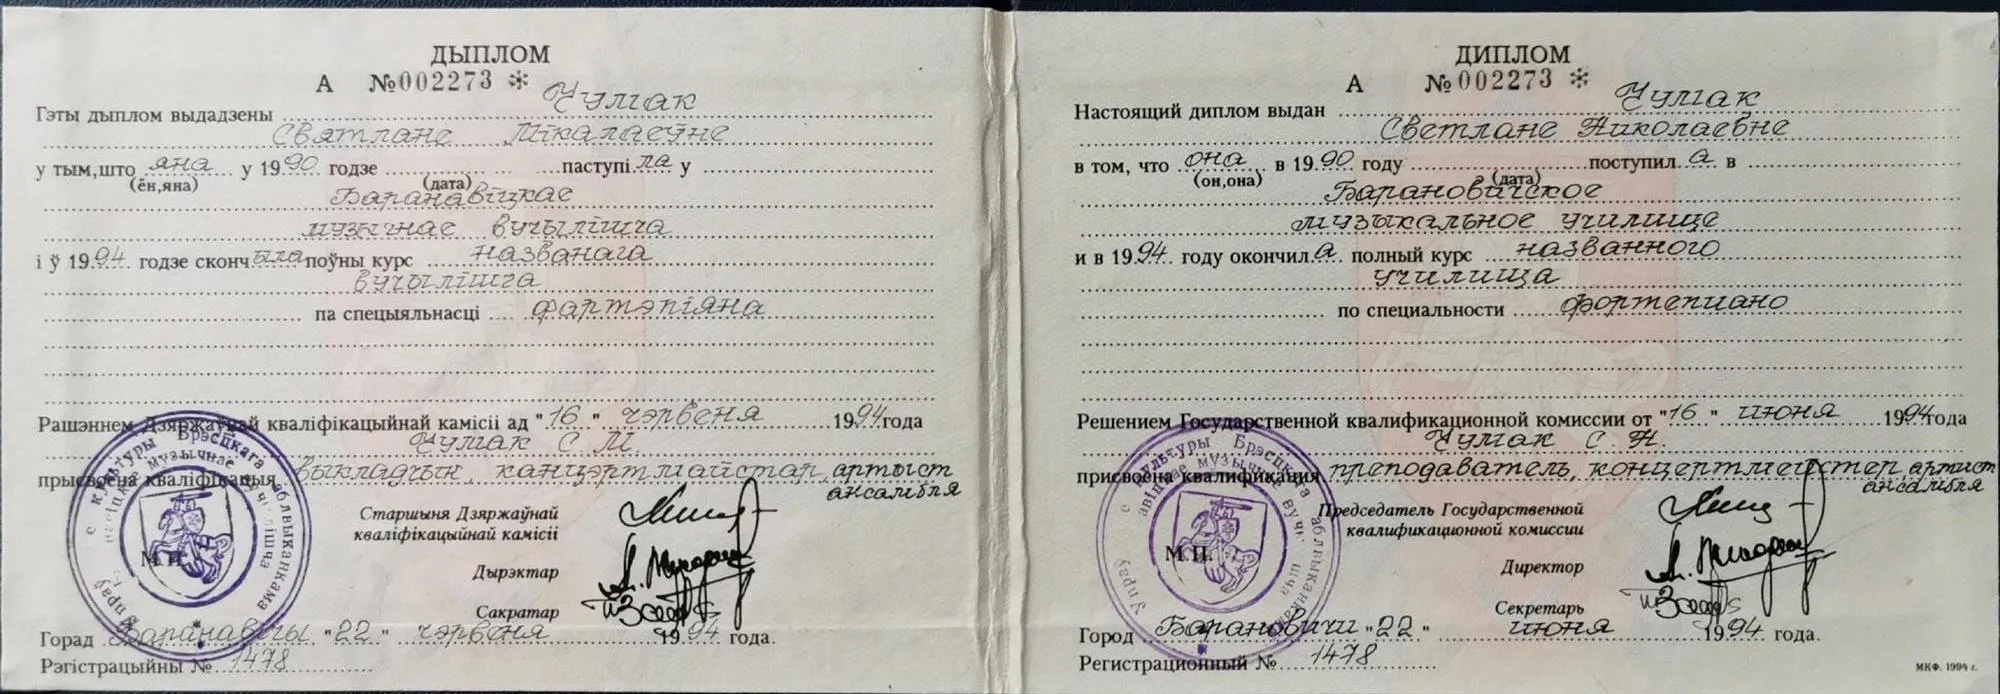 ДЫПЛОМ
А №002273 *
Гэты дыплом выдадзены Чумак
Святлане Мікалаеўне
у тым,што яна у 1990 годзе паступіла у
(ён,яна) (дата)
Баранавіцкае
музычнае вучылішча
і ў 1994 годзе скончыла поўны курс названага
вучылішча
па спецыяльнасці фартэпіяна
Рашэннем Дзяржаўнай кваліфікацыйнай камісіі ад "16" чэрвеня 1994года
Чумак С. М.
прысвоена кваліфікацыя выкладчык, канцэртмайстар, артыст
ансамбля
Старшыня Дзяржаўнай
кваліфікацыйнай камісіі
М.П.
Дырэктар
Сакратар
Горад Баранавічы "22" чэрвеня 1994 года.
Рэгістрацыйны № 1478
ДИПЛОМ
А №002273 *
Настоящий диплом выдан Чумак
Светлане Николаевне
в том, что она в 1990 году поступила в
(он,она) (дата)
Барановичское
музыкальное училище
и в 1994 году окончила полный курс названного
училища
по специальности фортепиано
Решением Государственной квалификационной комиссии от "16" июня 1994года
Чумак С. Н.
присвоена квалификация преподаватель, концертмейстер артист
ансамбля
Председатель Государственной
квалификационной комиссии
М.П.
Директор
Секретарь
Город Барановичи "22" июня 1994 года.
Регистрационный № 1478
МКФ. 1994 г.